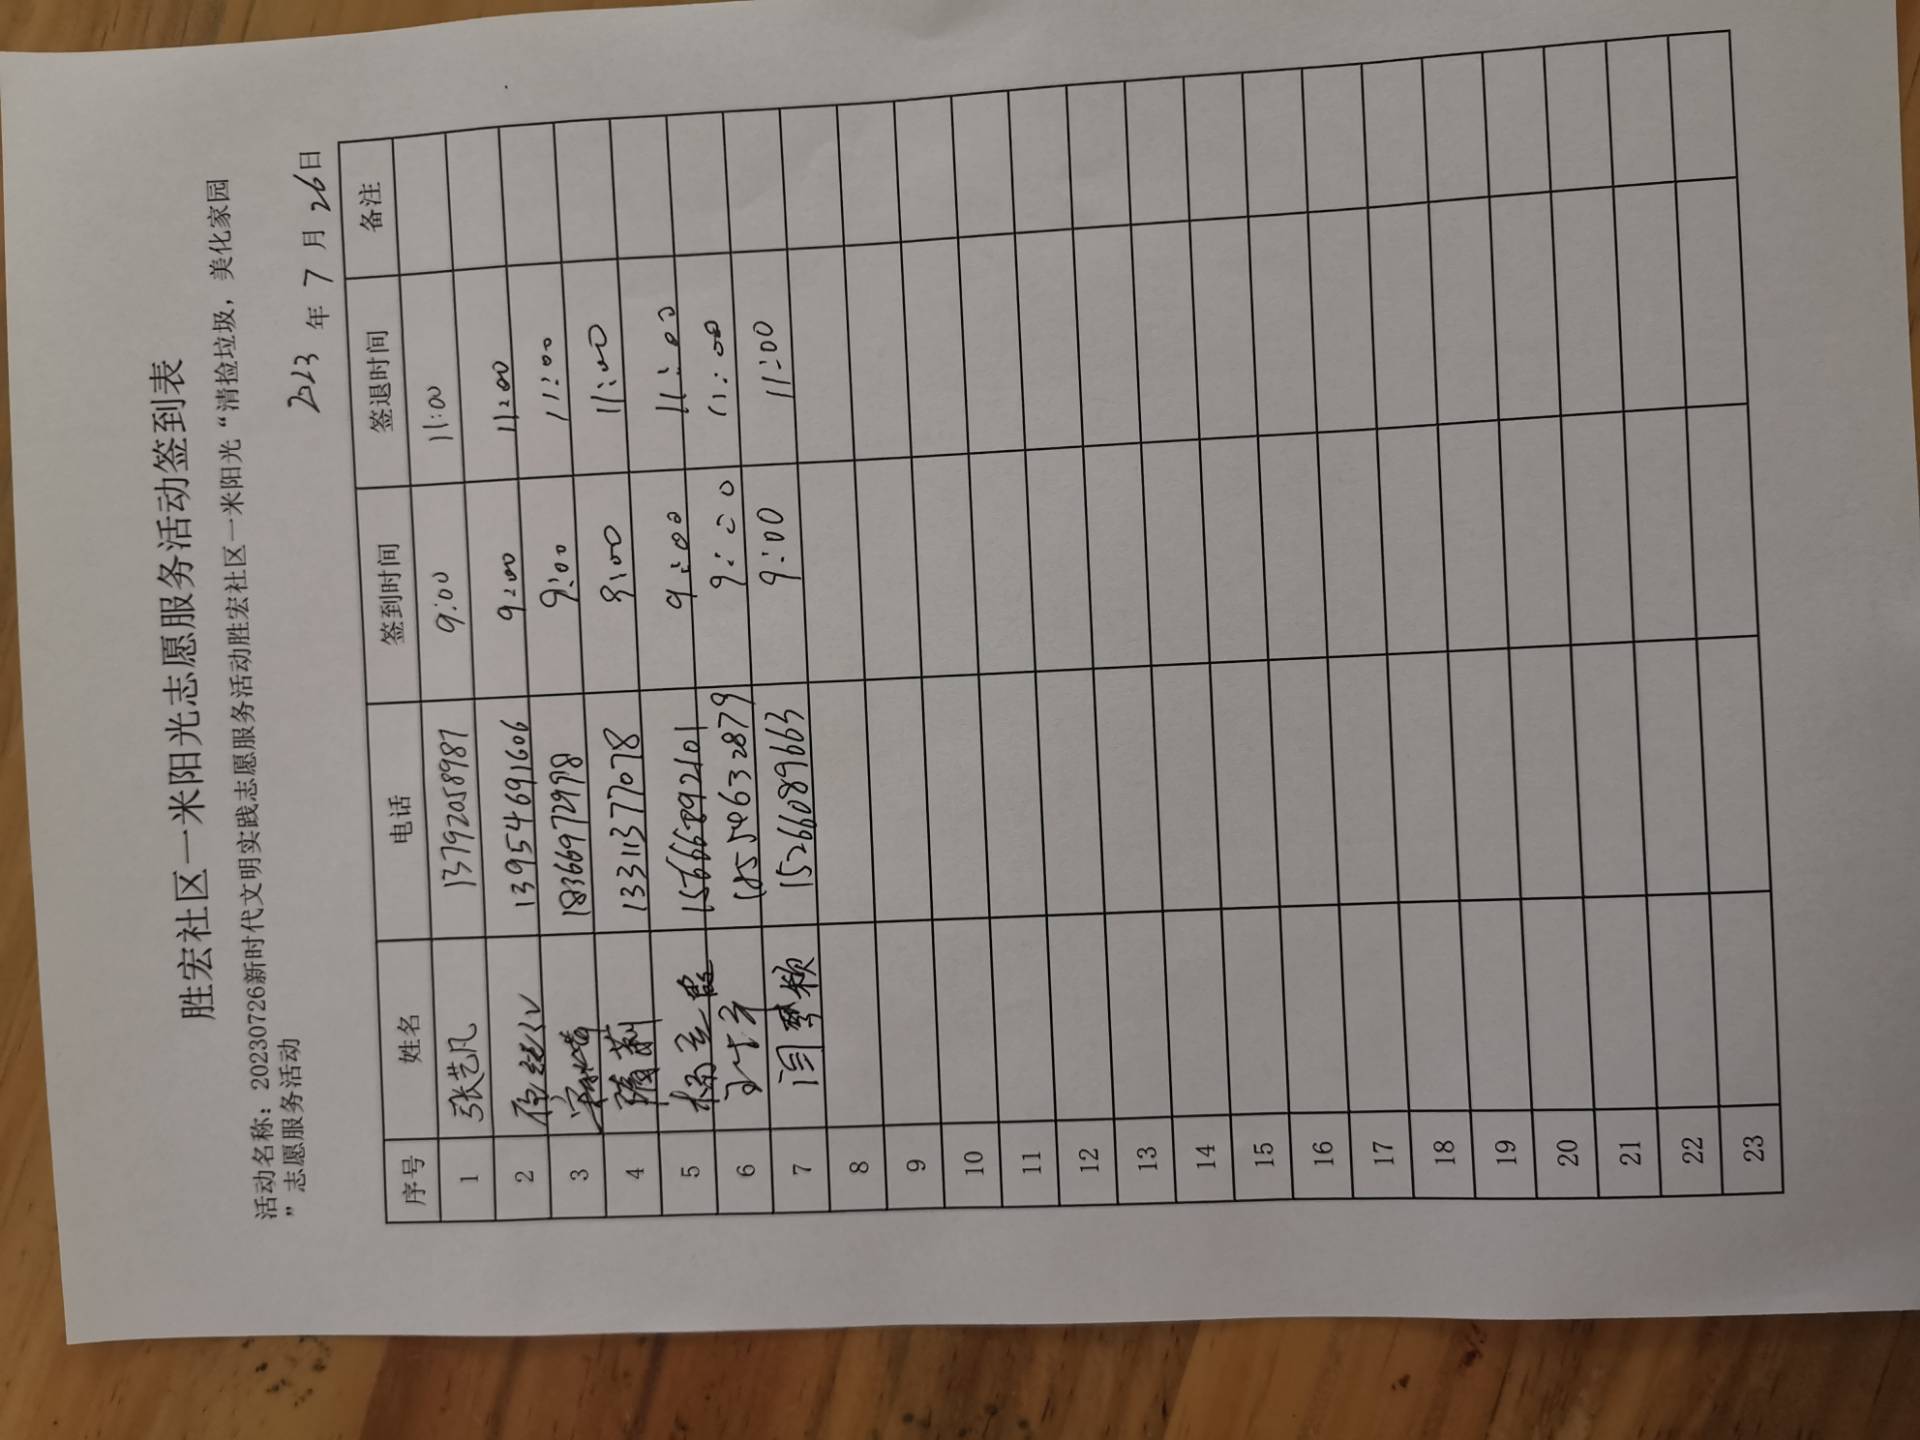 胜宏社区一米阳光志愿服务活动签到表
活动名称：20230726新时代文明实践志愿服务活动胜宏社区一米阳光“清捡垃圾，美化家园
”志愿服务活动
2023 年 7 月 26日
序号 姓名 电话 签到时间 签退时间 备注
1 张艺凡 13792058987 9:00 11:00
2 13954691606 9:00 11:00
3 18366972978 9:00 11:00
4 隋莉 13311377078 9:00 11:00
5 杨云霞 15666892101 9:00 11:00
6 18554632879 9:00 11:00
7 闫梦颖 15266089663 9:00 11:00
8
9
10
11
12
13
14
15
16
17
18
19
20
21
22
23